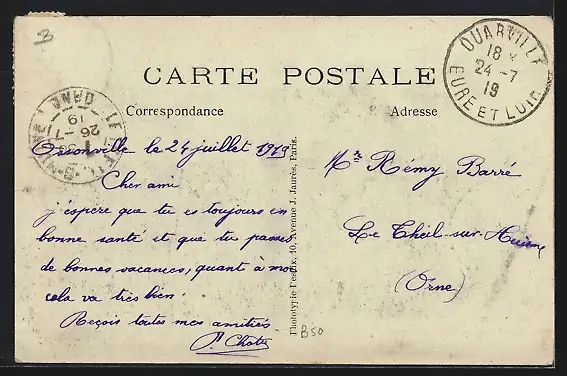 B
OUARVILLE
18
24 -7
19
EURE ET LOIR
CARTE POSTALE
Correspondance
Adresse
19
26 -7
ORNE
Ossonville le 24 juillet 1919
Cher ami
j'éspère que tu es toujours en
bonne santé et que tu passes
de bonnes vacances, quant à moi
cela va très bien.
Reçois toutes mes amitiés.
Mr Rémy Barré
Le Theil-sur-Huisne
(Orne)
Phototypie Desaix, 40, Avenue J. Jaurès, Paris.
B50